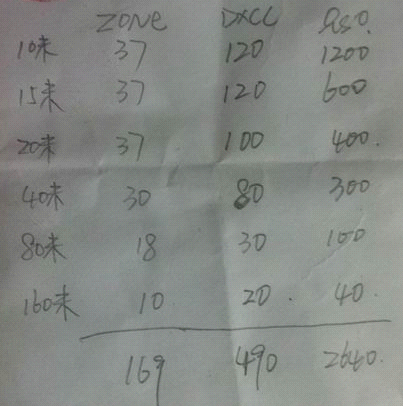 ZONE DXCC QSO.
10米 37 120 1200
15米 37 120 600
20米 37 100 400.
40米 30 80 300
80米 18 30 100
160米 10 20. 40.
169 490 2640.